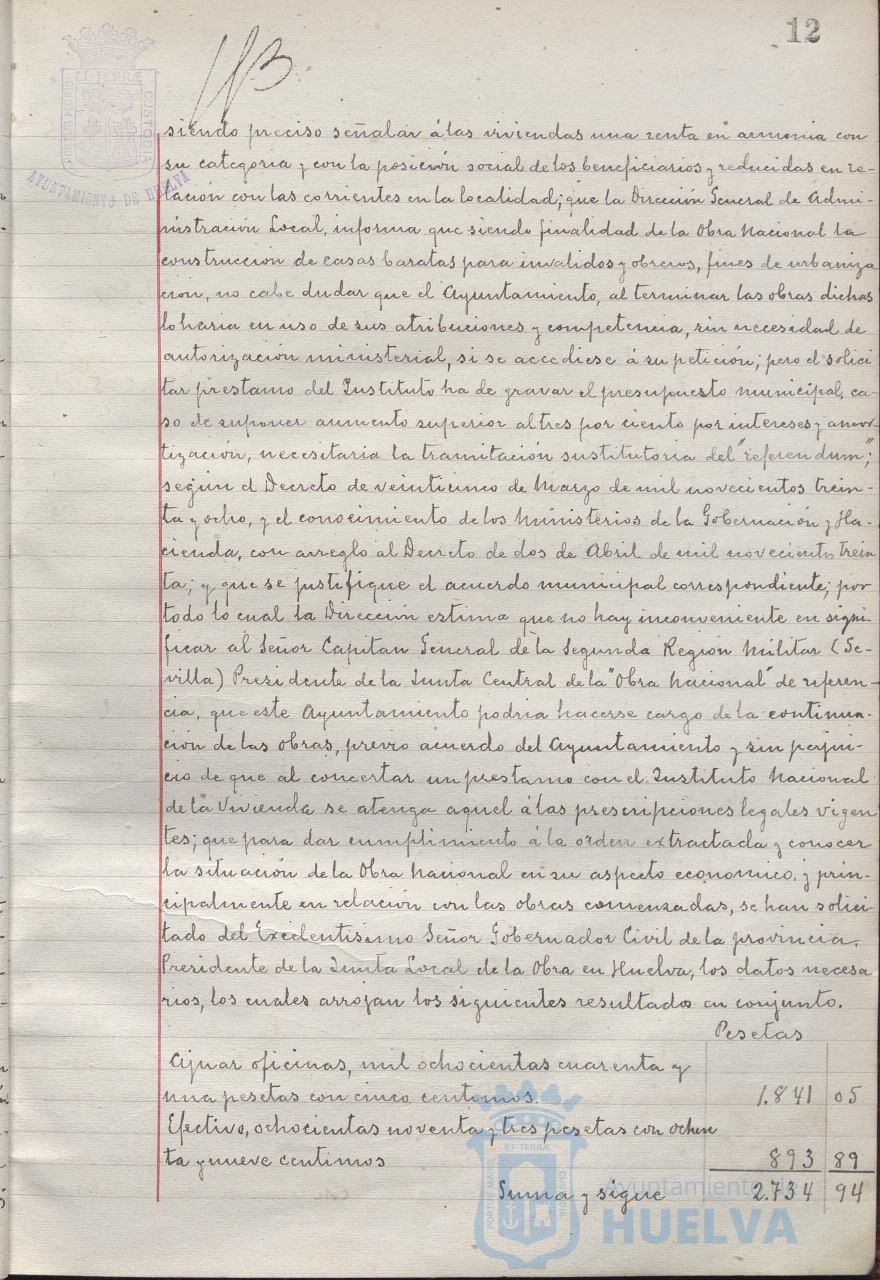 12
siendo preciso señalar á las viviendas una renta en armonia con
su categoria y con la posición social de los beneficiarios y reducidas en re-
lación con las corrientes en la localidad; que la Dirección General de Admi-
nistración Local, informa que siendo finalidad de la Obra Nacional la
construcción de casas baratas para invalidos y obreros, fines de urbaniza
ción, no cabe dudar que el Ayuntamiento, al terminar las obras dichas
lo haria en uso de sus atribuciones y competencia, sin necesidad de
autorización ministerial, si se accediese á su petición; pero el solici
tar prestamo del Instituto ha de gravar el presupuesto municipal, ca-
so de suponer aumento superior al tres por ciento por intereses y amor-
tización, necesitaria la tramitación sustitutoria del "referendum";
según el Decreto de veinticinco de Marzo de mil novecientos trein-
ta y ocho, y el conocimiento de los Ministerios de la Gobernación y Ha-
cienda, con arreglo al Decreto de dos de Abril de mil novecientos trein
ta; y que se justifique el acuerdo municipal correspondiente; por
todo lo cual la Dirección estima que no hay inconveniente en signi-
ficar al Señor Capitan General de la Segunda Region Militar (Se-
villa) Presidente de la Junta Central de la "Obra Nacional" de referen-
cia, que este Ayuntamiento podria hacerse cargo de la continua-
ción de las obras, previo acuerdo del Ayuntamiento y sin perjui-
cio de que al concertar un prestamo con el Instituto Nacional
de la Vivienda se atenga aquel á las prescripciones legales vigen
tes; que para dar cumplimiento á la orden extractada y conocer
la situación de la Obra Nacional en su aspecto economico, y prin-
cipalmente en relación con las obras comenzadas, se han solici-
tado del Excelentisimo Señor Gobernador Civil de la provincia,
Presidente de la Junta Local de la Obra en Huelva, los datos necesa
rios, los cuales arrojan los siguientes resultados en conjunto.
Pesetas
Ajuar oficinas, mil ochocientas cuarenta y
una pesetas con cinco centimos. 1.841 05
Efectivo, ochocientas noventa y tres pesetas con ochen
ta y nueve centimos 893 89
Suma y sigue 2.734 94
PORTUS MARIS ET TERRÆ CUSTODIA
AYUNTAMIENTO DE HUELVA
PORTUS MARIS ET TERRÆ CUSTODIA
Ayuntamiento de
HUELVA